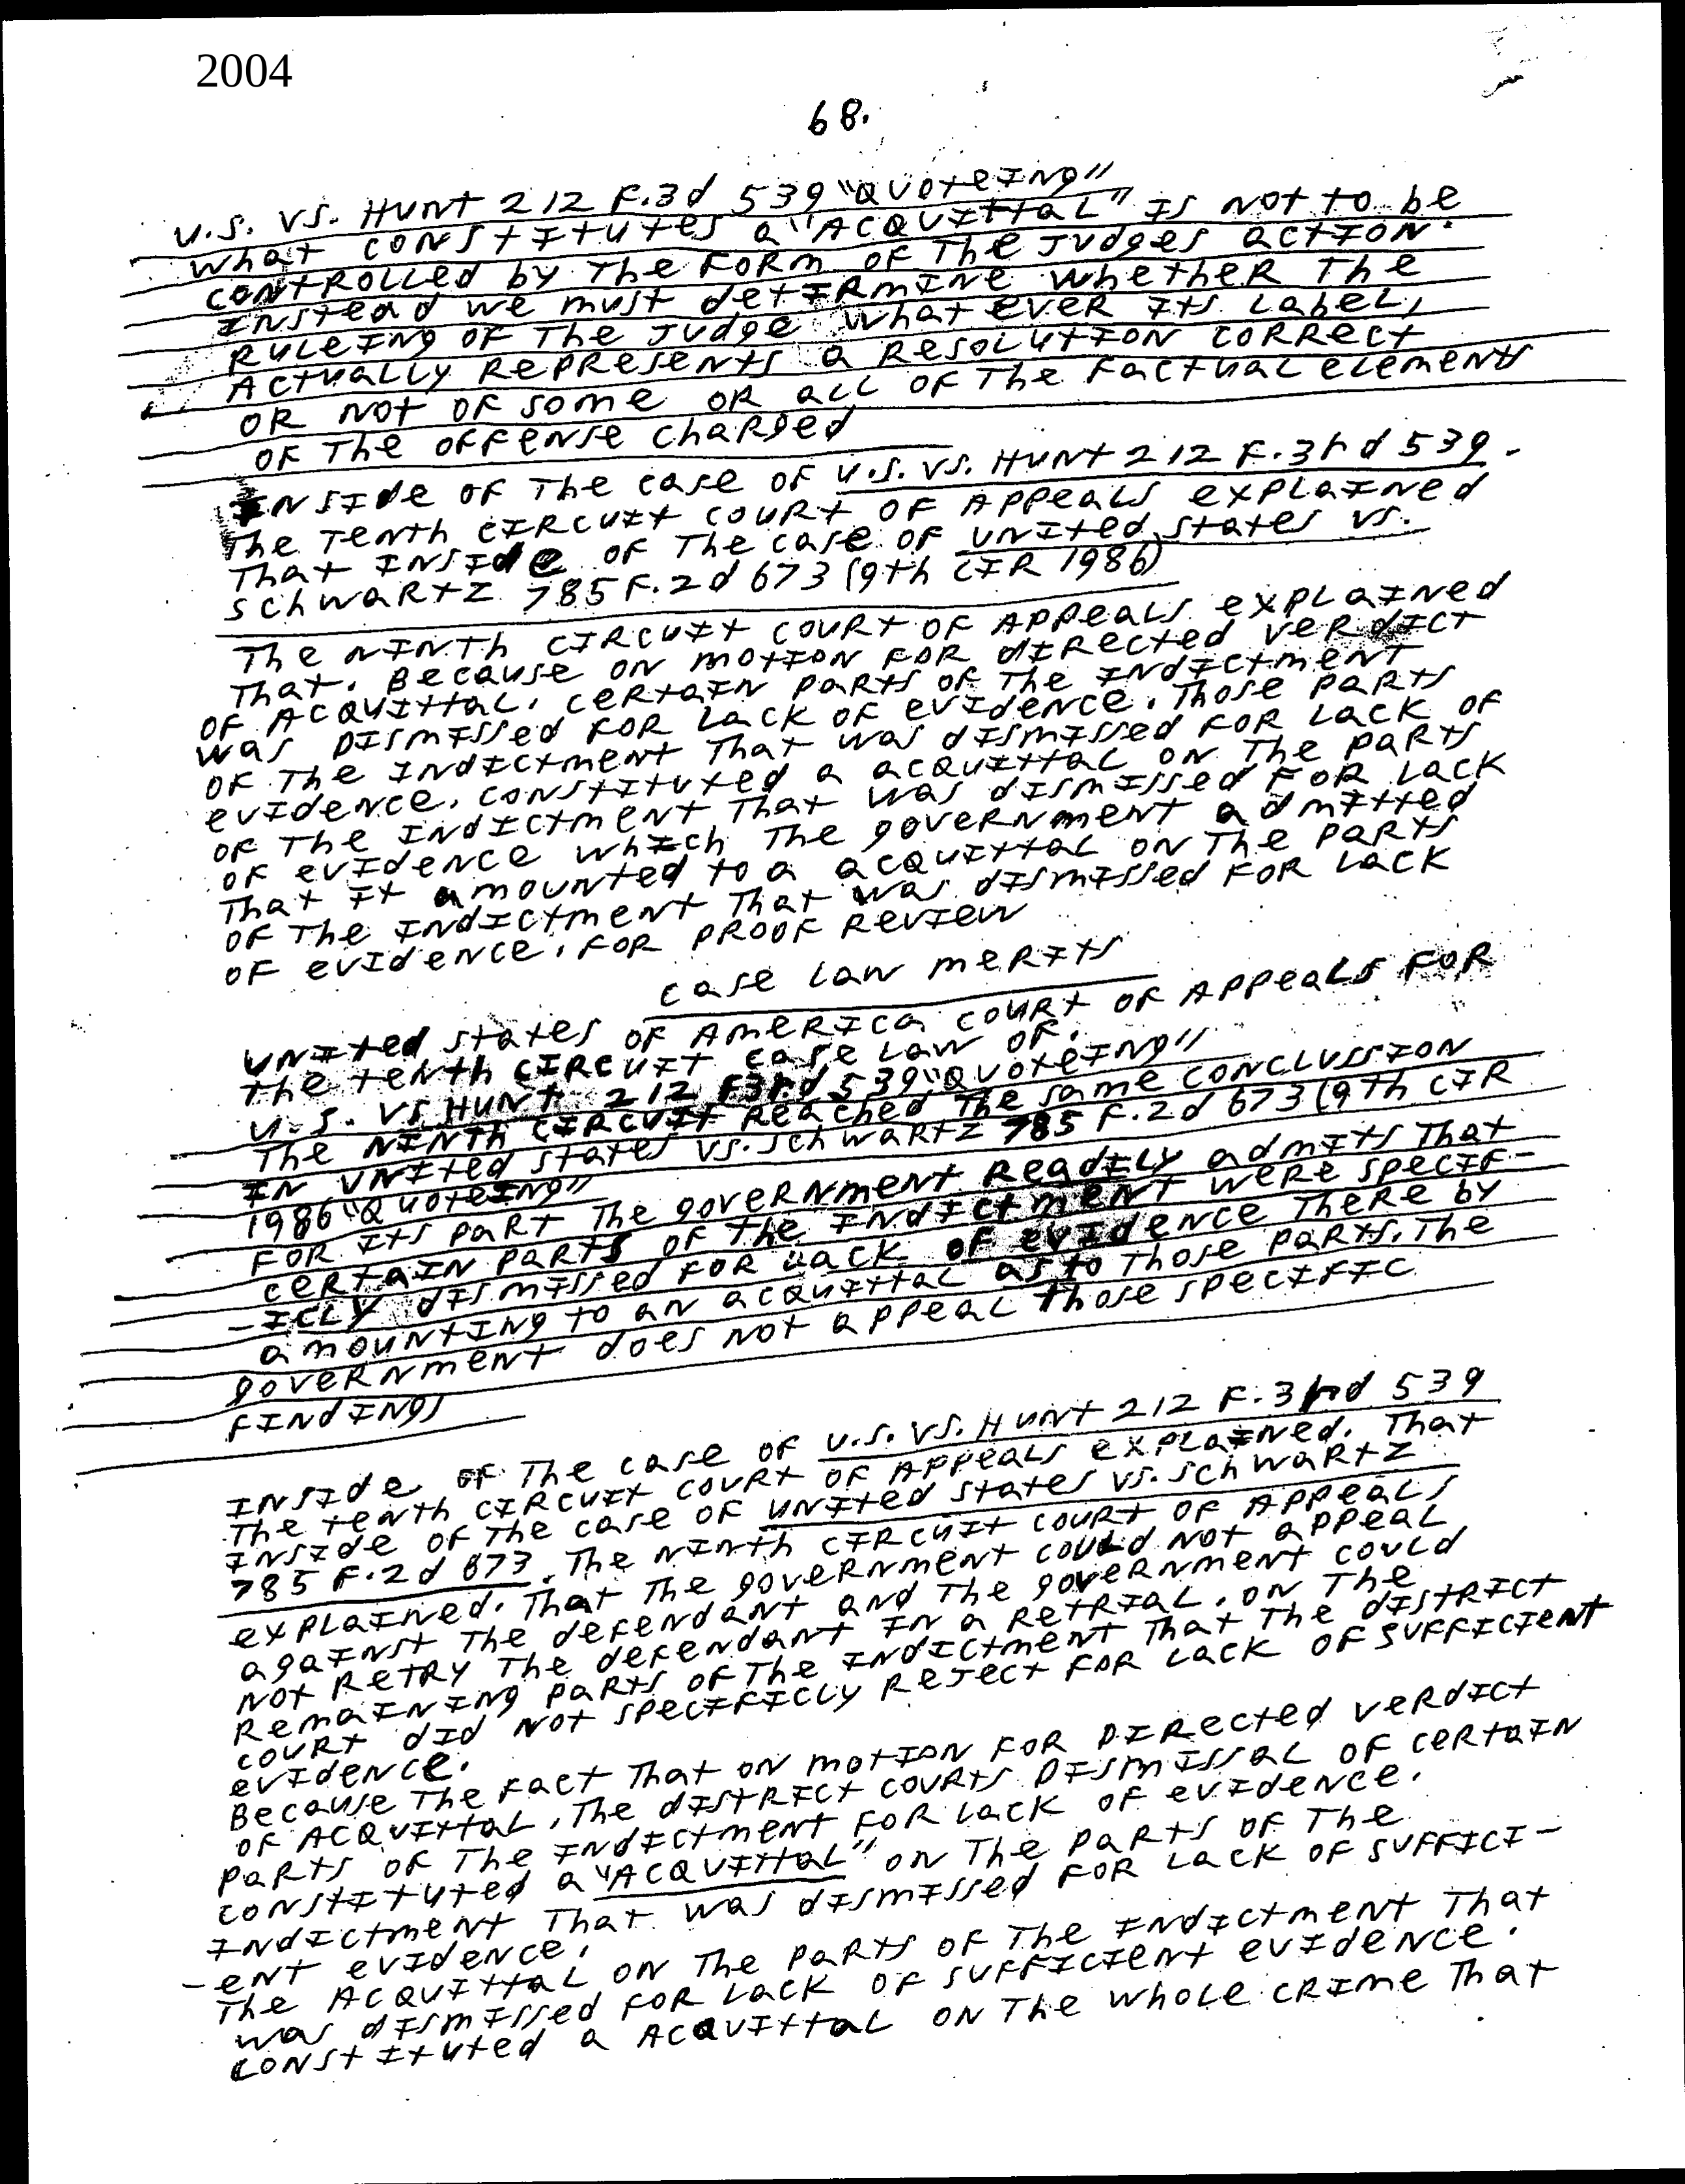 2004
68.
U.S. VS. HUNT 212 F.3d 539 "QUOTEING"
WHAT CONSTITUTES a "ACQUITTAL" IS NOT TO be
CONTROLLED by THE FORM OF THE JUDGES ACTION.
INSTEAD WE MUST DETIRMINE WHETHER THE
RULEING OF THE JUDGE WHAT EVER ITS LABEL,
ACTUALLY REPRESENTS a RESOLUTION CORRECT
OR NOT OF SOME OR ALL OF THE FACTUAL ELEMENTS
OF THE OFFENSE CHARGED
INSIDE OF THE CASE OF U.S. VS. HUNT 212 F.3rd 539.
THE TENTH CIRCUIT COURT OF APPEALS EXPLAINED
THAT INSIDE OF THE CASE OF UNITED STATES VS.
SCHWARTZ 785 F.2d 673 (9th CIR 1986)
THE NINTH CIRCUIT COURT OF APPEALS EXPLAINED
THAT. BECAUSE ON MOTION FOR DIRECTED VERDICT
OF ACQUITTAL. CERTAIN PARTS OF THE INDICTMENT
WAS DISMISSED FOR LACK OF EVIDENCE. THOSE PARTS
OF THE INDICTMENT THAT WAS DISMISSED FOR LACK OF
EVIDENCE. CONSTITUTED a ACQUITTAL ON THE PARTS
OF THE INDICTMENT THAT WAS DISMISSED FOR LACK
OF EVIDENCE WHICH THE GOVERNMENT ADMITTED
THAT IT AMOUNTED TO a ACQUITTAL ON THE PARTS
OF THE INDICTMENT THAT WAS DISMISSED FOR LACK
OF EVIDENCE. FOR PROOF REVIEW
CASE LAW MERITS
UNITED STATES OF AMERICA COURT OF APPEALS FOR
THE TENTH CIRCUIT CASE LAW OF.
U.S. VS. HUNT. 212 F3rd 539 "QUOTEING"
THE NINTH CIRCUIT REACHED THE SAME CONCLUSSION
IN UNITED STATES VS. SCHWARTZ 785 F.2d 673 (9th CIR
1986 "QUOTEING"
FOR ITS PART THE GOVERNMENT READILY ADMITS THAT
CERTAIN PARTS OF THE INDICTMENT WERE SPECIF-
-ICLY DISMISSED FOR LACK OF EVIDENCE THERE BY
AMOUNTING TO AN ACQUITTAL AS TO THOSE PARTS. THE
GOVERNMENT DOES NOT APPEAL THOSE SPECIFIC
FINDINGS
INSIDE OF THE CASE OF U.S. VS. HUNT 212 F.3rd 539
THE TENTH CIRCUIT COURT OF APPEALS EXPLAINED. THAT
INSIDE OF THE CASE OF UNITED STATES VS. SCHWARTZ
785 F.2d 673. THE NINTH CIRCUIT COURT OF APPEALS
EXPLAINED. THAT THE GOVERNMENT COULD NOT APPEAL
AGAINST THE DEFENDANT AND THE GOVERNMENT COULD
NOT RETRY THE DEFENDANT IN a RETRIAL. ON THE
REMAINING PARTS OF THE INDICTMENT THAT THE DISTRICT
COURT DID NOT SPECIFICLY REJECT FOR LACK OF SUFFICIENT
EVIDENCE.
BECAUSE THE FACT THAT ON MOTION FOR DIRECTED VERDICT
OF ACQUITTAL, THE DISTRICT COURTS DISMISSAL OF CERTAIN
PARTS OF THE INDICTMENT FOR LACK OF EVIDENCE.
CONSTITUTED a "ACQUITTAL" ON THE PARTS OF THE
INDICTMENT THAT WAS DISMISSED FOR LACK OF SUFFICI-
-ENT EVIDENCE.
THE ACQUITTAL ON THE PARTS OF THE INDICTMENT THAT
WAS DISMISSED FOR LACK OF SUFFICIENT EVIDENCE.
CONSTITUTED a ACQUITTAL ON THE WHOLE CRIME THAT